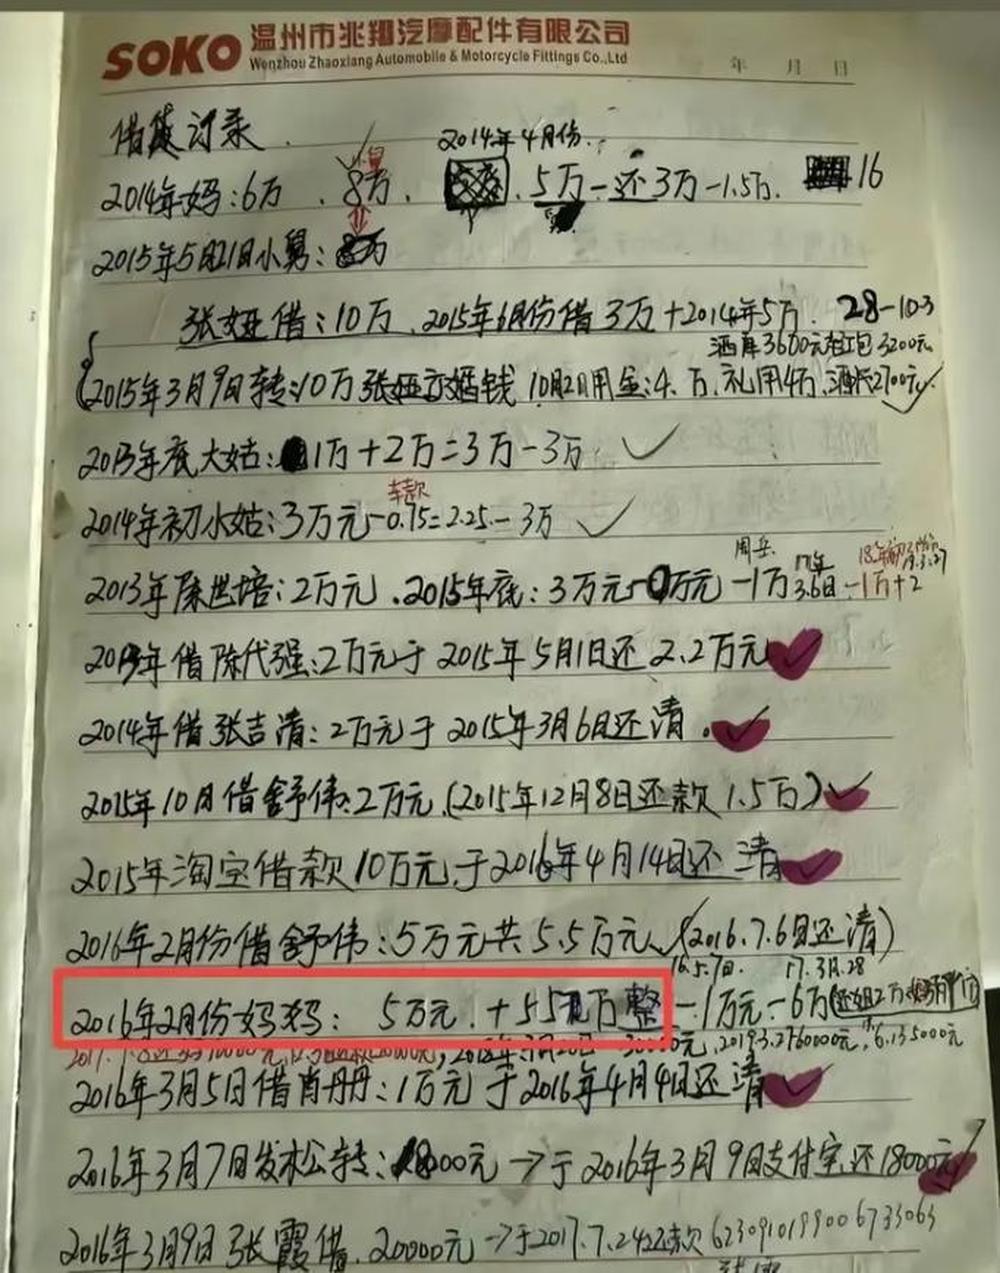 SOKO 温州市兆翔汽摩配件有限公司
Wenzhou Zhaoxiang Automobile & Motorcycle Fittings Co.,Ltd
年 月 日
借贷记录
2014年4月份
2014年妈:6万 、8万、 5万-还3万-1.5万. 16
2015年5月21日小舅:
张娅借:10万、2015年6月份借3万+2014年5万. 28-10-3
酒席3600元 红包3200元
2015年3月9日转:10万张娅 婚钱 10月2日用金:4.万、礼用4万、 2700元
2013年底大姑: 1万+2万=3万-3万
车款
2014年初小姑:3万元-0.75=2.25-3万
周岳 17年 18年初
2013年 世培:2万元.2015年底:3万元- 万元-1万 3.6日-1万+2
年借陈代强:2万元于2015年5月1日还2.2万元
2014年借张吉清:2万元于2015年3月6日还清.
2015年10月借舒伟:2万元(2015年12月8日还款1.5万)
2015年淘宝借款10万元于2016年4月14日还清
2016年2月份借舒伟:5万元共5.5万元(2016.7.6日还清)
16.5.7日. 17.3月.28
2016年2月份妈妈: 5万元.+5 万整-1万元-6万(还姐2万
30000元,2019.3.27 60000元, 6.13 5000元
2016年3月5日借肖丹丹:1万元于2016年4月4日还清
2016年3月7日 转: 8000元→于2016年3月9日支付宝还18000元
2016年3月9日张霞借.20000元→于2017.7.24 款6230910199006733063